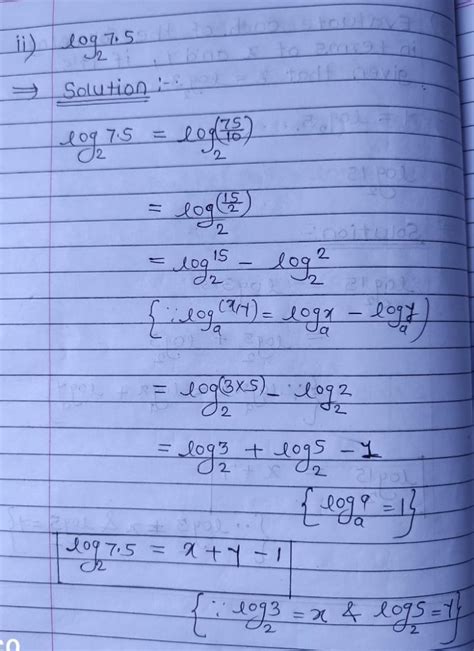 ii) log₂ 7.5
⇒ Solution :-
log₂ 7.5 = log₂ (75/10)
= log₂ (15/2)
= log₂ 15 - log₂ 2
{∵ logₐ (x/y) = logₐ x - logₐ y}
= log₂ (3×5) - log₂ 2
= log₂ 3 + log₂ 5 - 1
{logₐ a = 1}
log₂ 7.5 = x + y - 1
{∵ log₂ 3 = x & log₂ 5 = y}